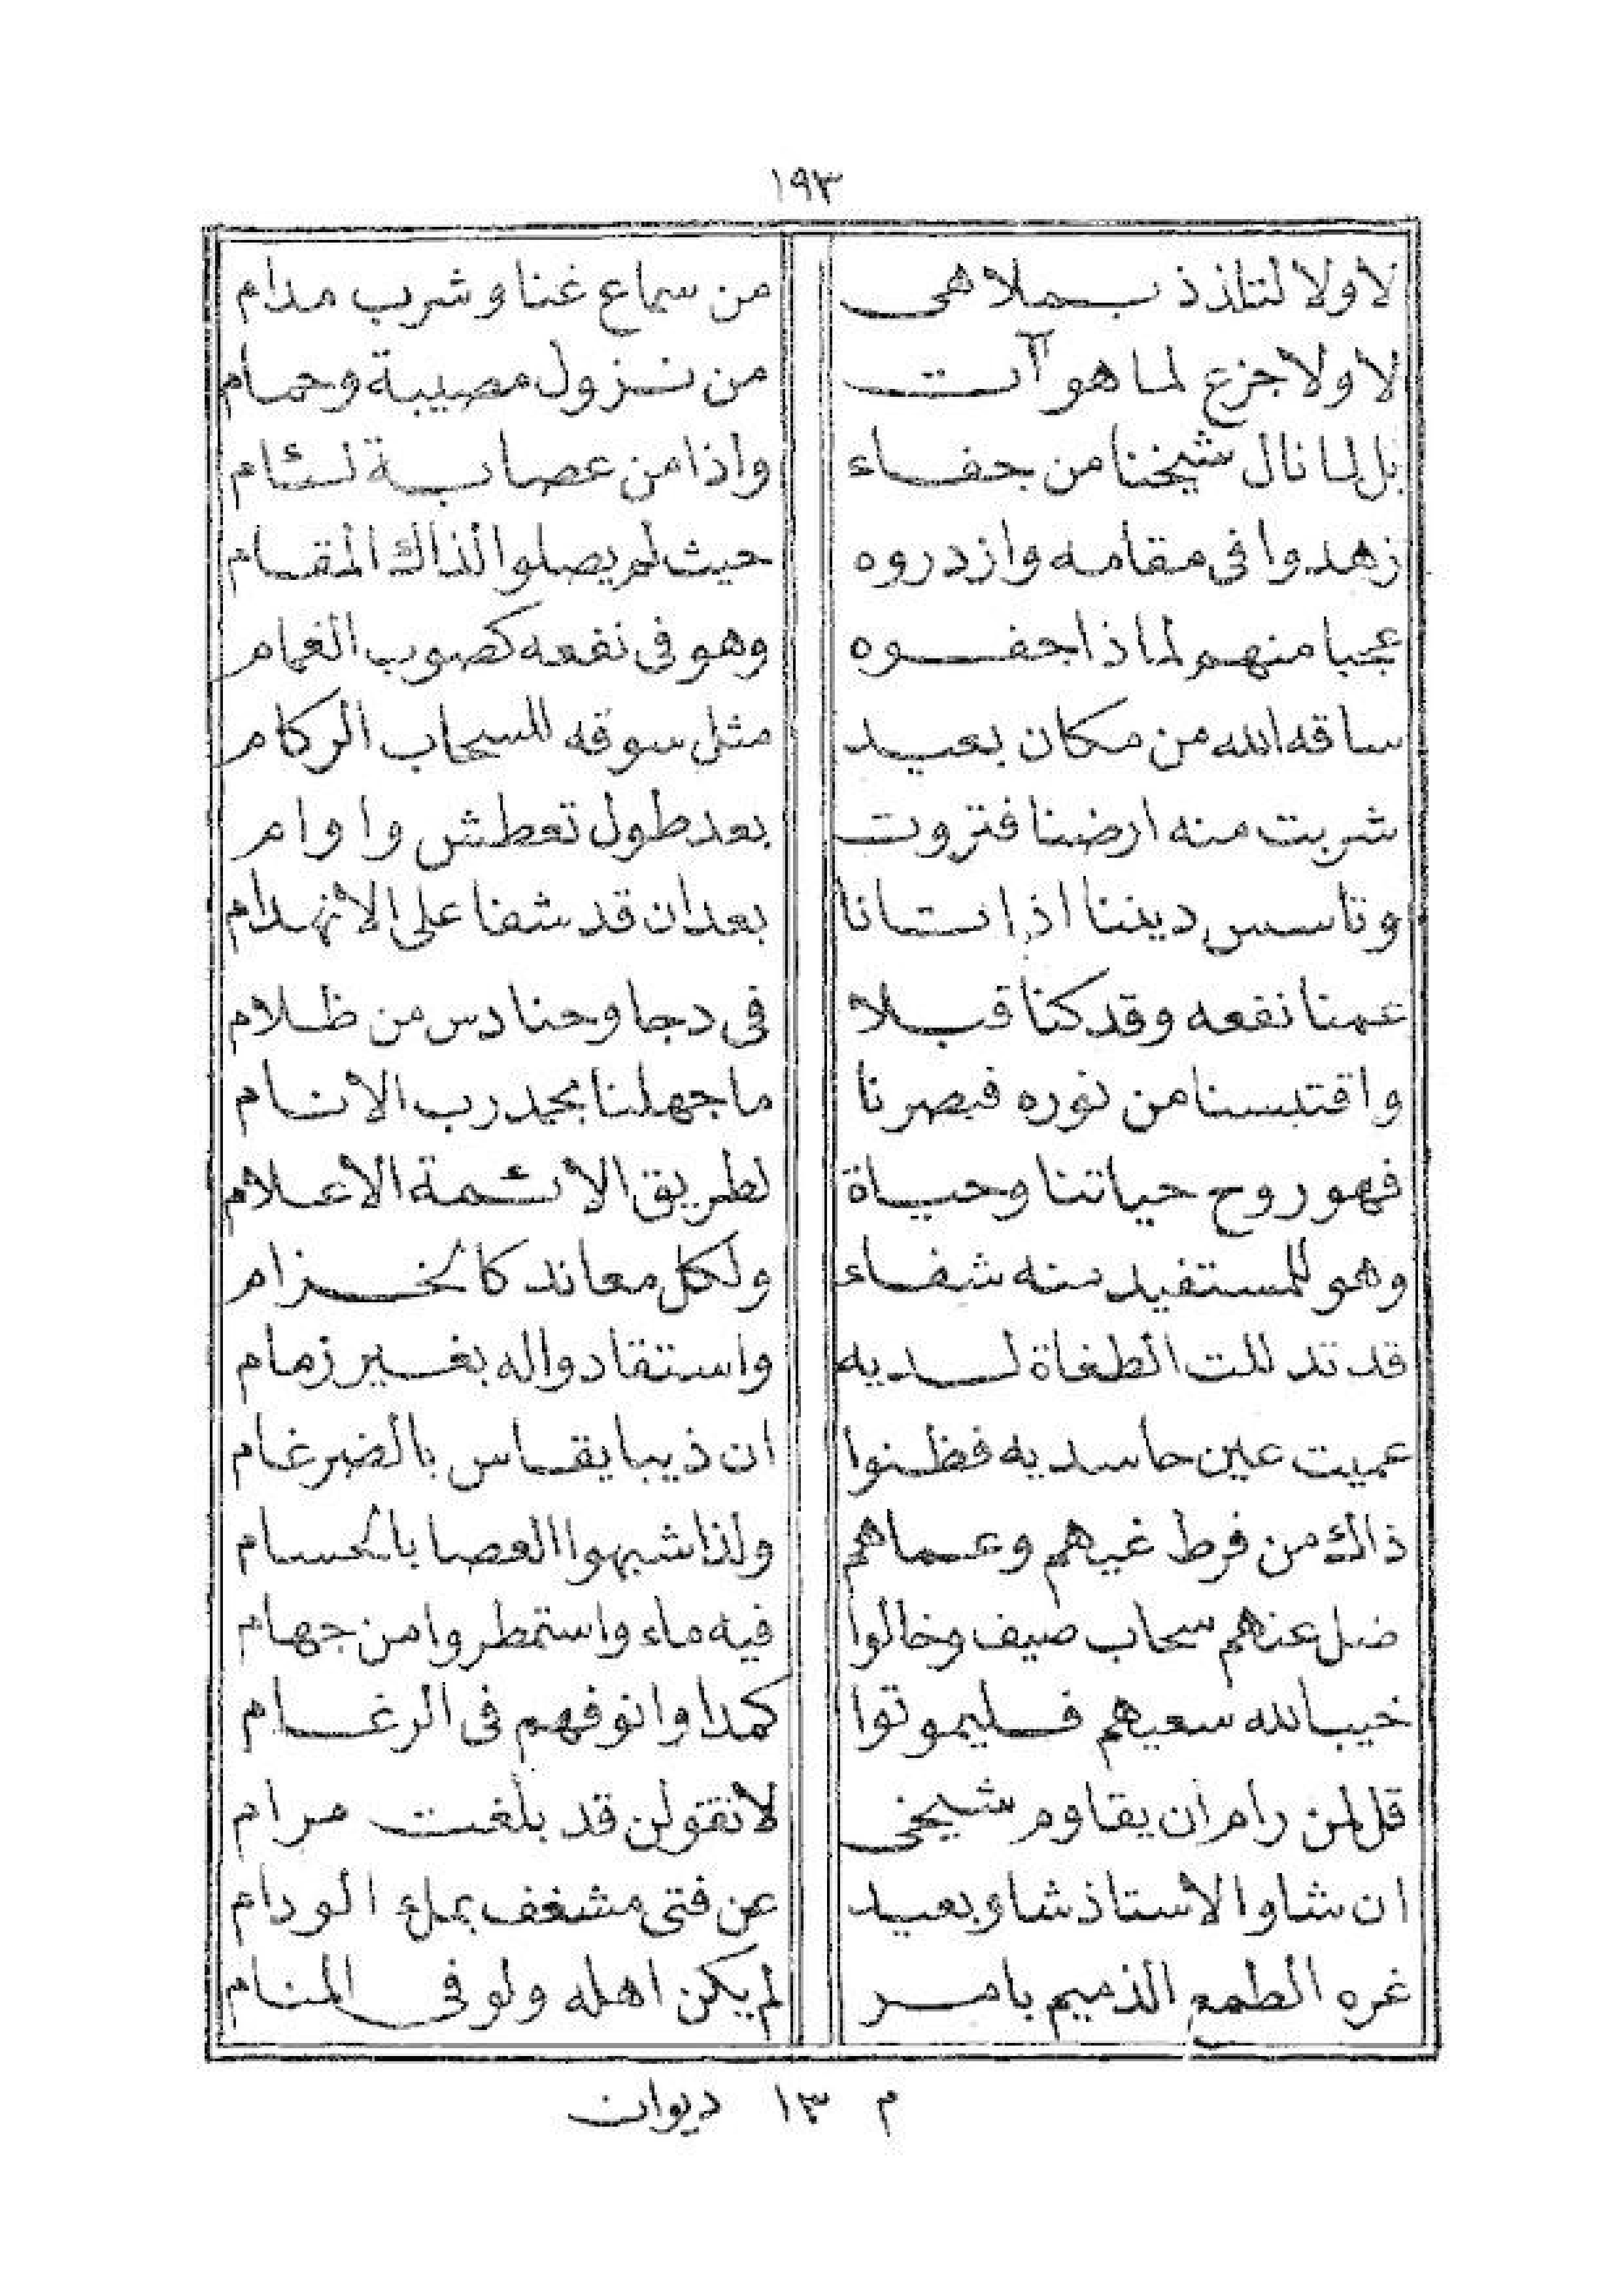 ١٩٣
لا ولا لتلذذ بملاهى من سماع غنا وشرب مدام
لا ولا جزع لما هو آت من نزول مصيبة وحمام
بل لما نال شيخنا من جفاء واذا من عصابة لئام
زهدوا فى مقامه وازدروه حيث لم يصلوا لذاك المقام
عجبا منهم لماذا جفوه وهو فى نفعه كصوب الغمام
ساقه الله من مكان بعيد مثل سوقه للسحاب الركام
شربت منه ارضنا فتروت بعد طول تعطش واوام
وتاسس ديننا اذ اتانا بعد ان قد شفا على الانهدام
عمنا نفعه وقد كنا قبلا فى دجا وحنادس من ظلام
واقتبسنا من نوره فبصرنا ما جهلنا بحمد رب الانام
فهو روح حياتنا وحياة لطريق الائمة الاعلام
وهو للمستفيد منه شفاء ولكل معاند كالخزام
قد تذللت الطغاة لديه واستقادوا له بغير زمام
عميت عين حاسديه فظنوا ان ذيبا يقاس بالضرغام
ذاك من فرط غيهم وعماهم ولذا شبهوا العصا بالحسام
ضل عنهم سحاب صيف وخالوا فيه ماء واستمطروا من جهام
خيب الله سعيهم فليموتوا كمدا وانوفهم فى الرغام
قل لمن رام ان يقاوم شيخى لا تقولن قد بلغت مرام
ان شاو الاستاذ شاو بعيد عن فتى مشغف بملء الودام
غره الطمع الذميم بامر لم يكن اهله ولو فى المنام
م ١٣ ديوان